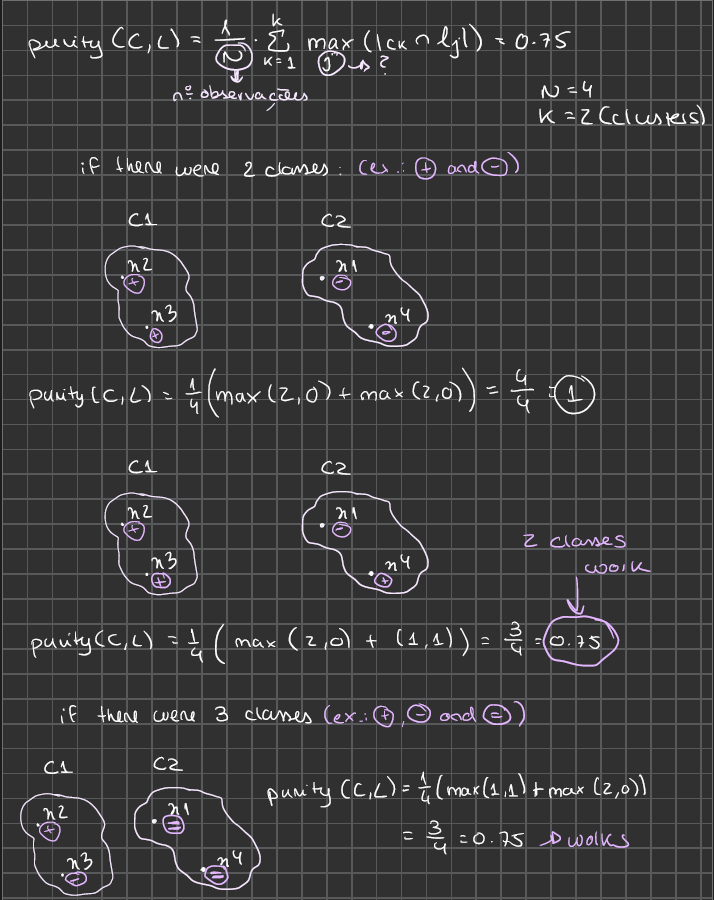 purity (C, L) = 1/N · Σ_{k=1}^{K} max_j (|ck ∩ lj|) = 0.75
j → ?
nº observações
N = 4
K = 2 (clusters)
if there were 2 classes: (ex.: ⊕ and ⊖)
C1 C2
x2 x1
+ -
x3 x4
+ -
purity (C, L) = 1/4 (max (2,0) + max (2,0)) = 4/4 = 1
C1 C2
x2 x1
+ -
x3 x4
+ +
2 classes
work
purity (C, L) = 1/4 ( max (2,0) + (1,1)) = 3/4 = 0.75
if there were 3 classes (ex.: ⊕, ⊖ and ⊜)
C1 C2
x2 x1
+ =
x3 x4
- =
purity (C, L) = 1/4 (max(1,1) + max (2,0))
= 3/4 = 0.75 → works